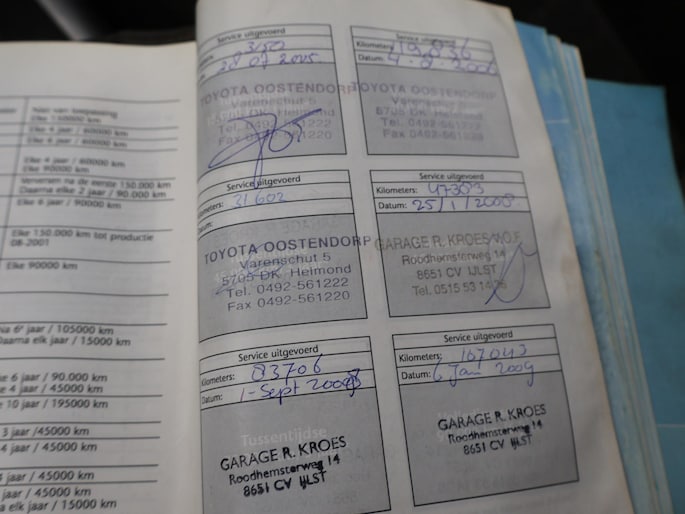 Niet van toepassing
Elke 150000 km
Elke 4 jaar / 60000 km
Elke 6 jaar / 60000 km
Elke 4 jaar / 60000 km
Elke 90000 km
Verversen na de eerste 150.000 km
Daarna elke 2 jaar / 90.000 km
Elke 6 jaar / 90000 km
Elke 150.000 km tot productie
08-2001
Elke 90000 km
Na 6e jaar / 105000 km
Daarna elk jaar / 15000 km
e 6 jaar / 90.000 km
e 4 jaar / 45000 km
e 10 jaar / 195000 km
3 jaar /45000 km
4 jaar / 45000 km
jaar / 45000 km
jaar / 45000 km
a elk jaar / 15000 km
Service uitgevoerd
28 07 2005.
TOYOTA OOSTENDORP
Varenschut 5
5705 DK Helmond
Tel. 0492-561222
Fax 0492-561220
Service uitgevoerd
Kilometers: 19.836
Datum:
TOYOTA OOSTENDORP
Varenschut 5
5705 DK Helmond
Tel. 0492-561222
Fax 0492-561220
Service uitgevoerd
meters: 31602
Datum:
TOYOTA OOSTENDORP
Varenschut 5
5705 DK Helmond
Tel. 0492-561222
Fax 0492-561220
Service uitgevoerd
Kilometers: 47303
Datum: 25/1/2008
GARAGE R. KROES V.O.F.
Roodhemsterweg 14
8651 CV IJLST
Tel. 0515 53 14
Service uitgevoerd
Kilometers: 83706
Datum: 1-Sept 2008
Tussentijdse
GARAGE R. KROES
Roodhemsterweg 14
8651 CV IJLST
Service uitgevoerd
Kilometers: 107043
Datum: 6 Jan 2009
GARAGE R. KROES
Roodhemsterweg 14
8651 CV IJLST